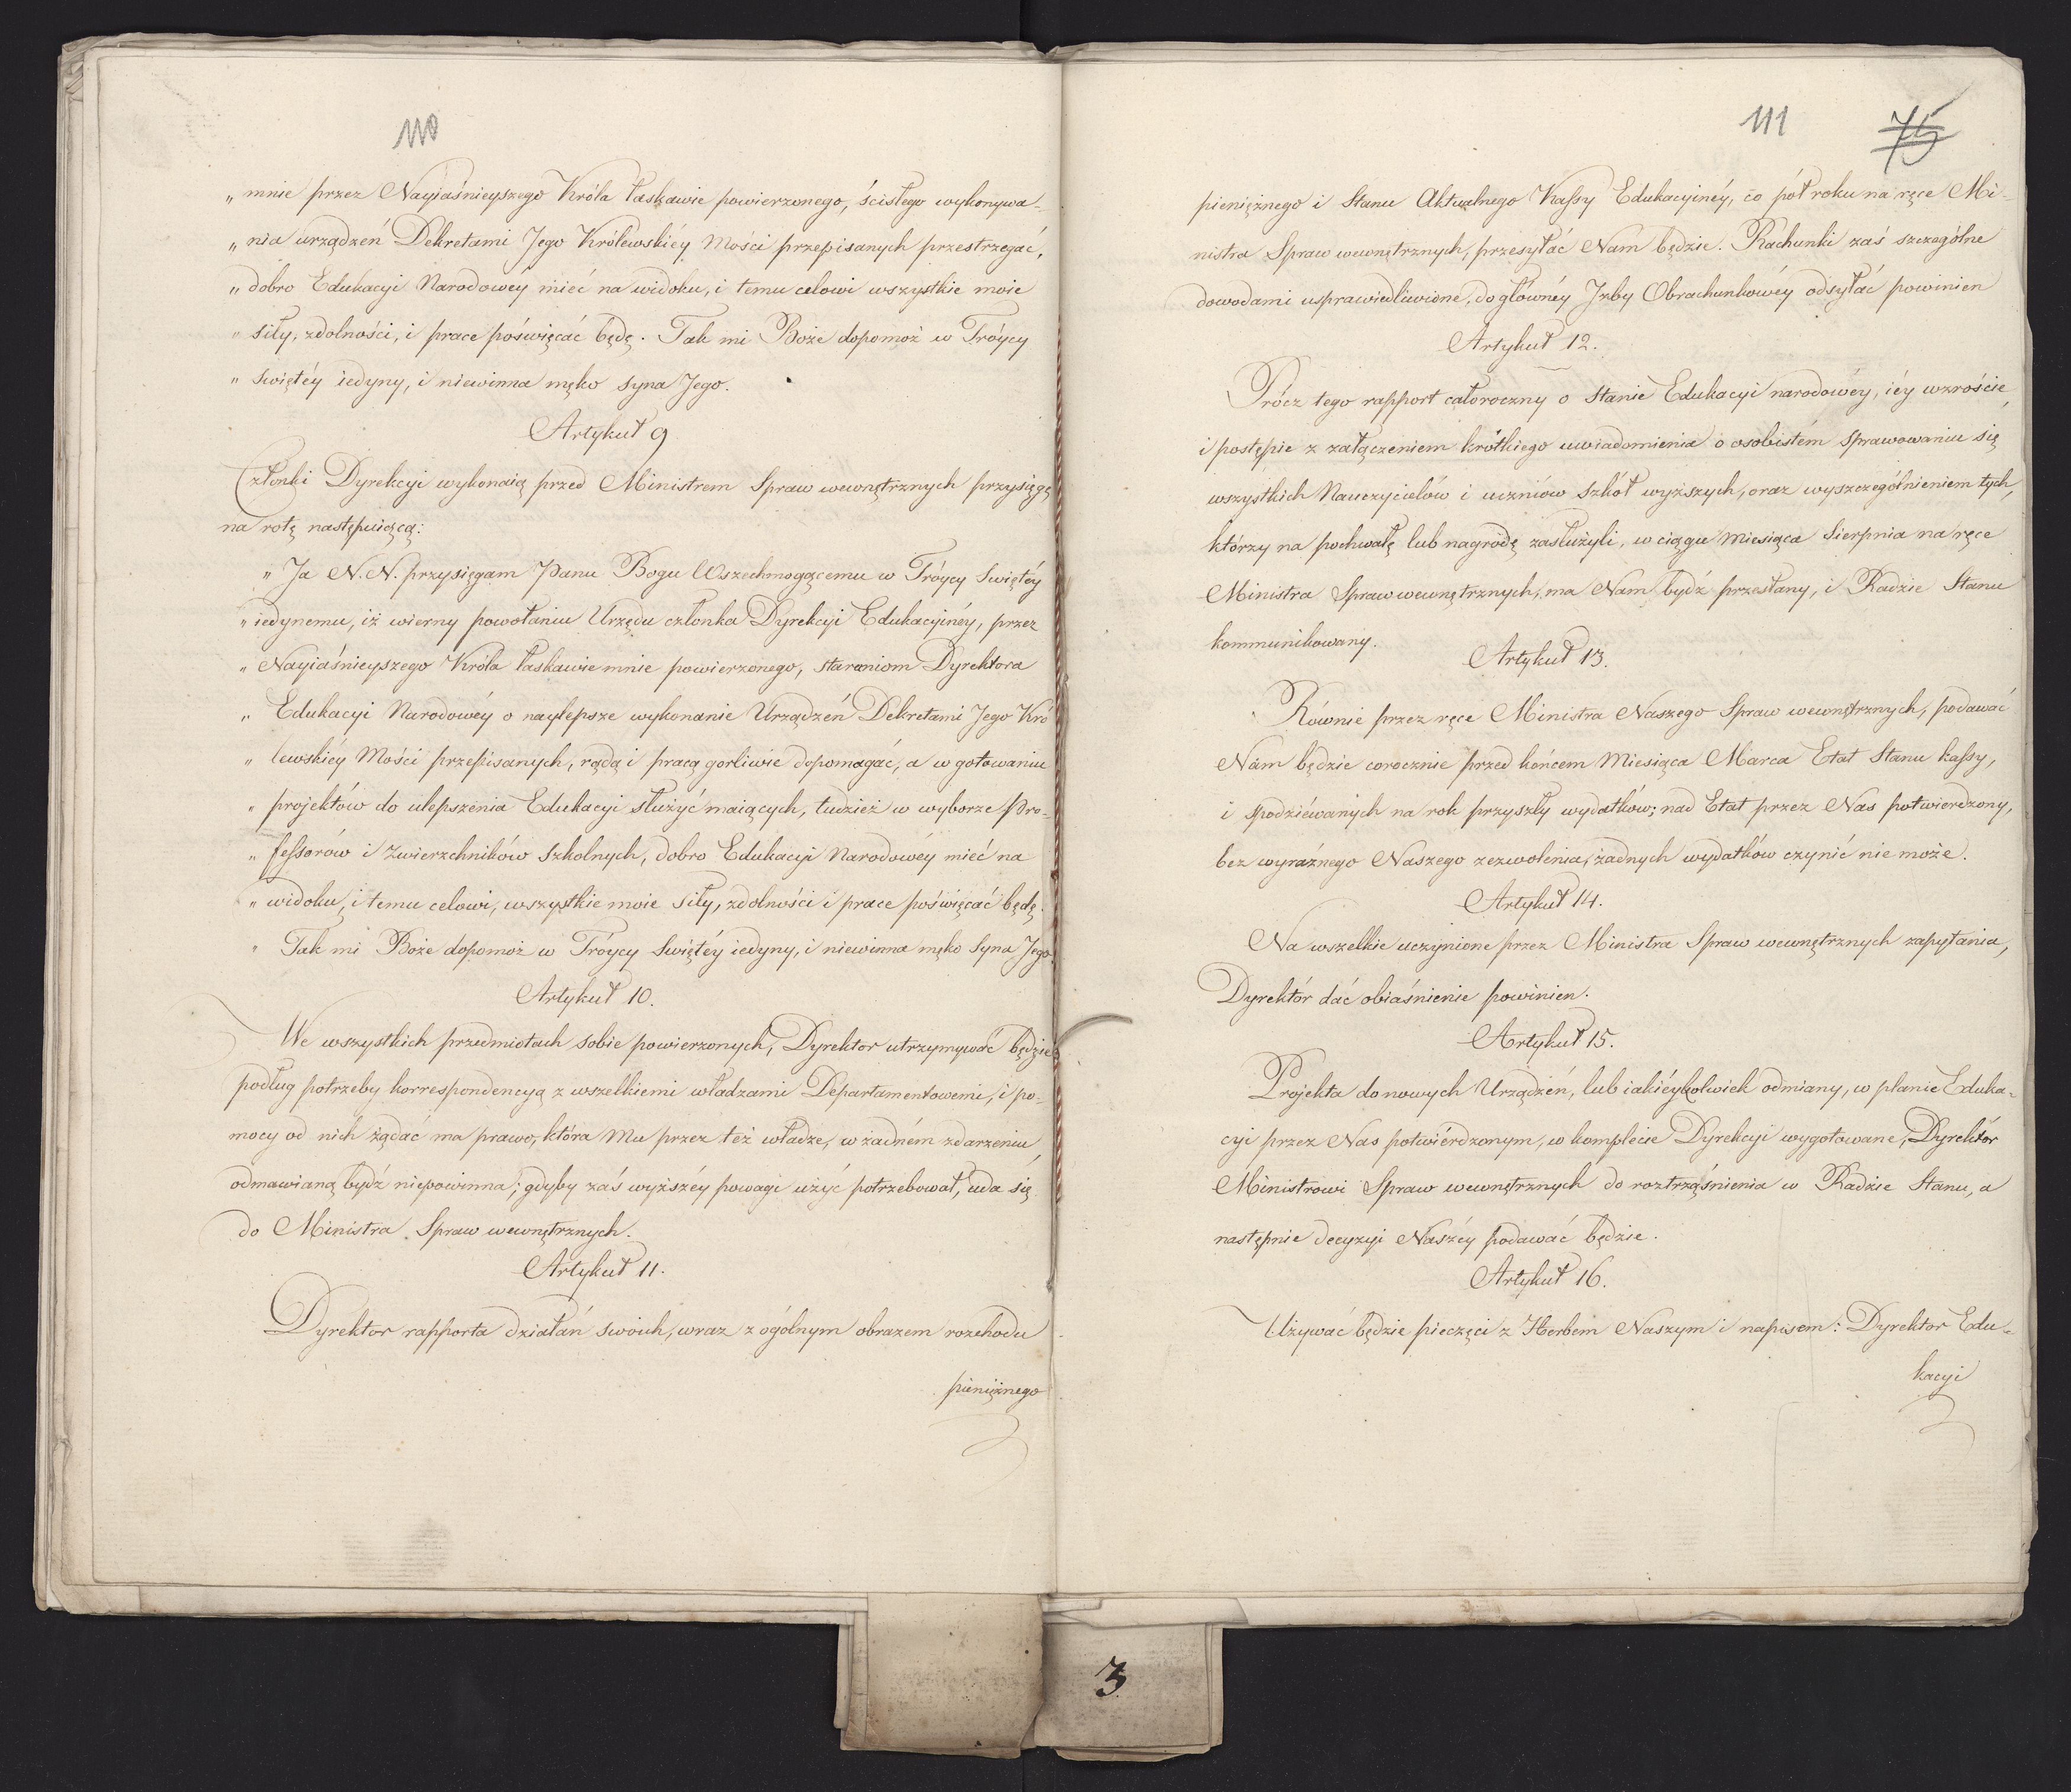 110
„ mnie przez Nayiaśnieyszego Króla łaskawie powierzonego, ścisłego wykonywa-
„ nia urządzeń Dekretami Jego Królewskiéy Mości przepisanych przestrzegać,
„ dobro Edukacyi Narodowéy mieć na widoku, i temu celowi wszystkie moie
„ siły, zdolności, i prace poświęcać będę. Tak mi Boże dopomoż w Tróycy
„ świętéy iedyny, i niewinna męko syna Jego.
Artykuł 9
Członki Dyrekcyi wykonaią przed Ministrem Spraw wewnętrznych przysięgę
na rotę następuiącą:
„ Ja N. N. przysięgam Panu Bogu Wszechmogącemu w Tróycy Swiętéy
„ iedynemu, iż wierny powołaniu Urzędu członka Dyrekcyi Edukacyinéy, przez
„ Nayiaśnieyszego Króla łaskawie mnie powierzonego, staraniom Dyrektora
„ Edukacyi Narodowéy o naylepsze wykonanie Urządzeń Dekretami Jego Kró
„ lewskiéy Mości przepisanych, radą i pracą gorliwie dopomagać, a w gotowaniu
„ projektów do ulepszenia Edukacyi służyć maiących, tudzież w wyborze Pro-
„ fessorów i Zwierzchników szkolnych, dobro Edukacyi Narodowéy mieć na
„ widoku, i temu celowi, wszystkie moie siły, zdolności i prace poświęcać będę.
„ Tak mi Boże dopomoż w Tróycy Swiętéy iedyny, i niewinna męko Syna Jego.
Artykuł 10.
We wszystkich przedmiotach sobie powierzonych, Dyrektor utrzymywać będzie
podług potrzeby korrespondencyą z wszelkiemi władzami Departamentowemi, i po-
mocy od nich żądać ma prawo, która Mu przez też władze, w żadném zdarzeniu,
odmawianą bydź niepowinna; gdyby zaś wyższéy powagi użyć potrzebował, uda się
do Ministra Spraw wewnętrznych.
Artykuł 11.
Dyrektor rapporta działań swoich, wraz z ogólnym obrazem rozchodu
pieniężnego
111 75
pieniężnego i Stanu Aktualnego Kassy Edukacyinéy, co pół roku na ręce Mi-
nistra Spraw wewnętrznych, przesyłać Nam będzie. Rachunki zaś szczególne
dowodami usprawiedliwione, do głównéy Jzby Obrachunkowéy odsyłać powinien
Artykuł 12.
Prócz tego rapport całoroczny o stanie Edukacyi narodowéy, iéy wzroście,
i postępie z załączeniem krótkiego uwiadomienia o osobistém sprawowaniu się
wszystkich Nauczycielów i uczniów szkół wyższych, oraz wyszczególnieniem tych,
którzy na pochwałę lub nagrodę zasłużyli, w ciągu miesiąca Sierpnia na ręce
Ministra Spraw wewnętrznych, ma Nam bydź przesłany, i Radzie Stanu
kommunikowany.
Artykuł 13.
Równie przez ręce Ministra Naszego Spraw wewnętrznych, podawać
Nam będzie corocznie przed końcem Miesiąca Marca Etat Stanu kassy,
i spodziéwanych na rok przyszły wydatków; nad Etat przez Nas potwierdzony,
bez wyraźnego Naszego zezwolenia, żadnych wydatków czynić nie może.
Artykuł 14.
Na wszelkie uczynione przez Ministra Spraw wewnętrznych zapytania,
Dyrektór dać obiaśnienie powinien.
Artykuł 15.
Projekta do nowych Urządzeń, lub iakiéykolwiek odmiany, w planie Eduka-
cyi przez Nas potwiérdzonym, w komplecie Dyrekcyi wygotowane, Dyrektór
Ministrowi Spraw wewnętrznych do roztrząśnienia w Radzie Stanu, a
następnie decyzyi Naszéy podawać będzie.
Artykuł 16.
Używać będzie pieczęci z Herbem Naszym i napisem: Dyrektor Edu-
kacyi
3